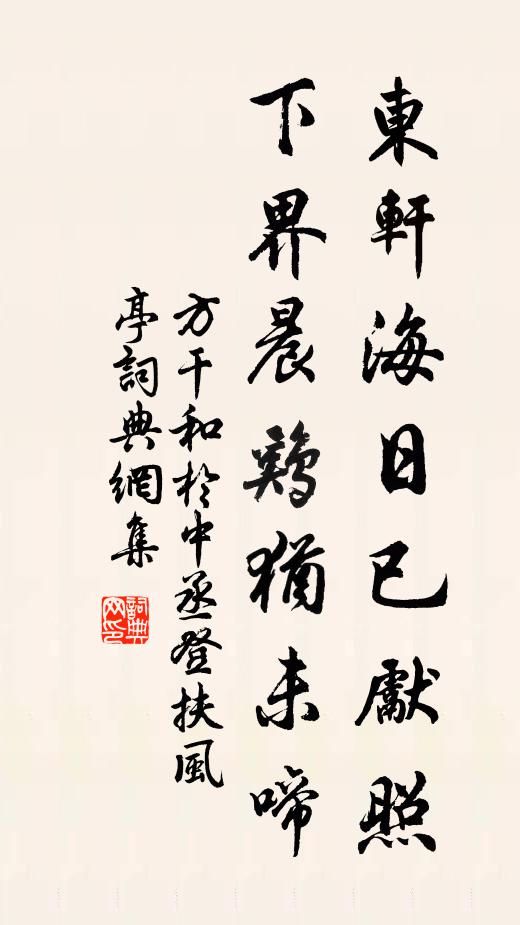 東軒海日已獻照
下界晨鷄猶未啼
方干和於中丞登扶風
亭詞典網集
詞典网印